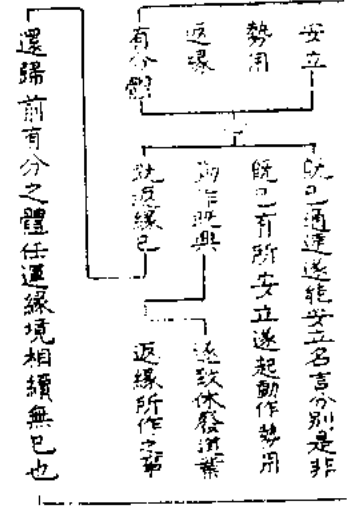 安立
勢用
返緣
有分體
既已通達遂能安立名言分別是非
既已有所安立遂起動作勢用
動作既興
遂致休廢道業
既返緣已
返緣所作之事
還歸前有分之體任運緣境相續無已也